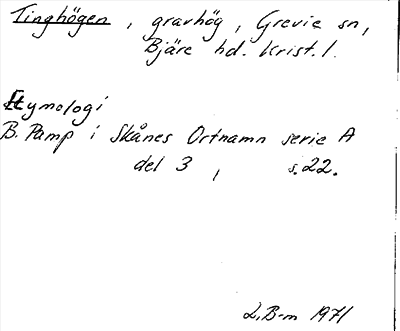 Tinghögen, gravhög, Grevie sn,
Bjäre hd. Krist. l.
Etymologi
B. Pamp i Skånes Ortnamn serie A
del 3, s. 22.
L. B-m 1971